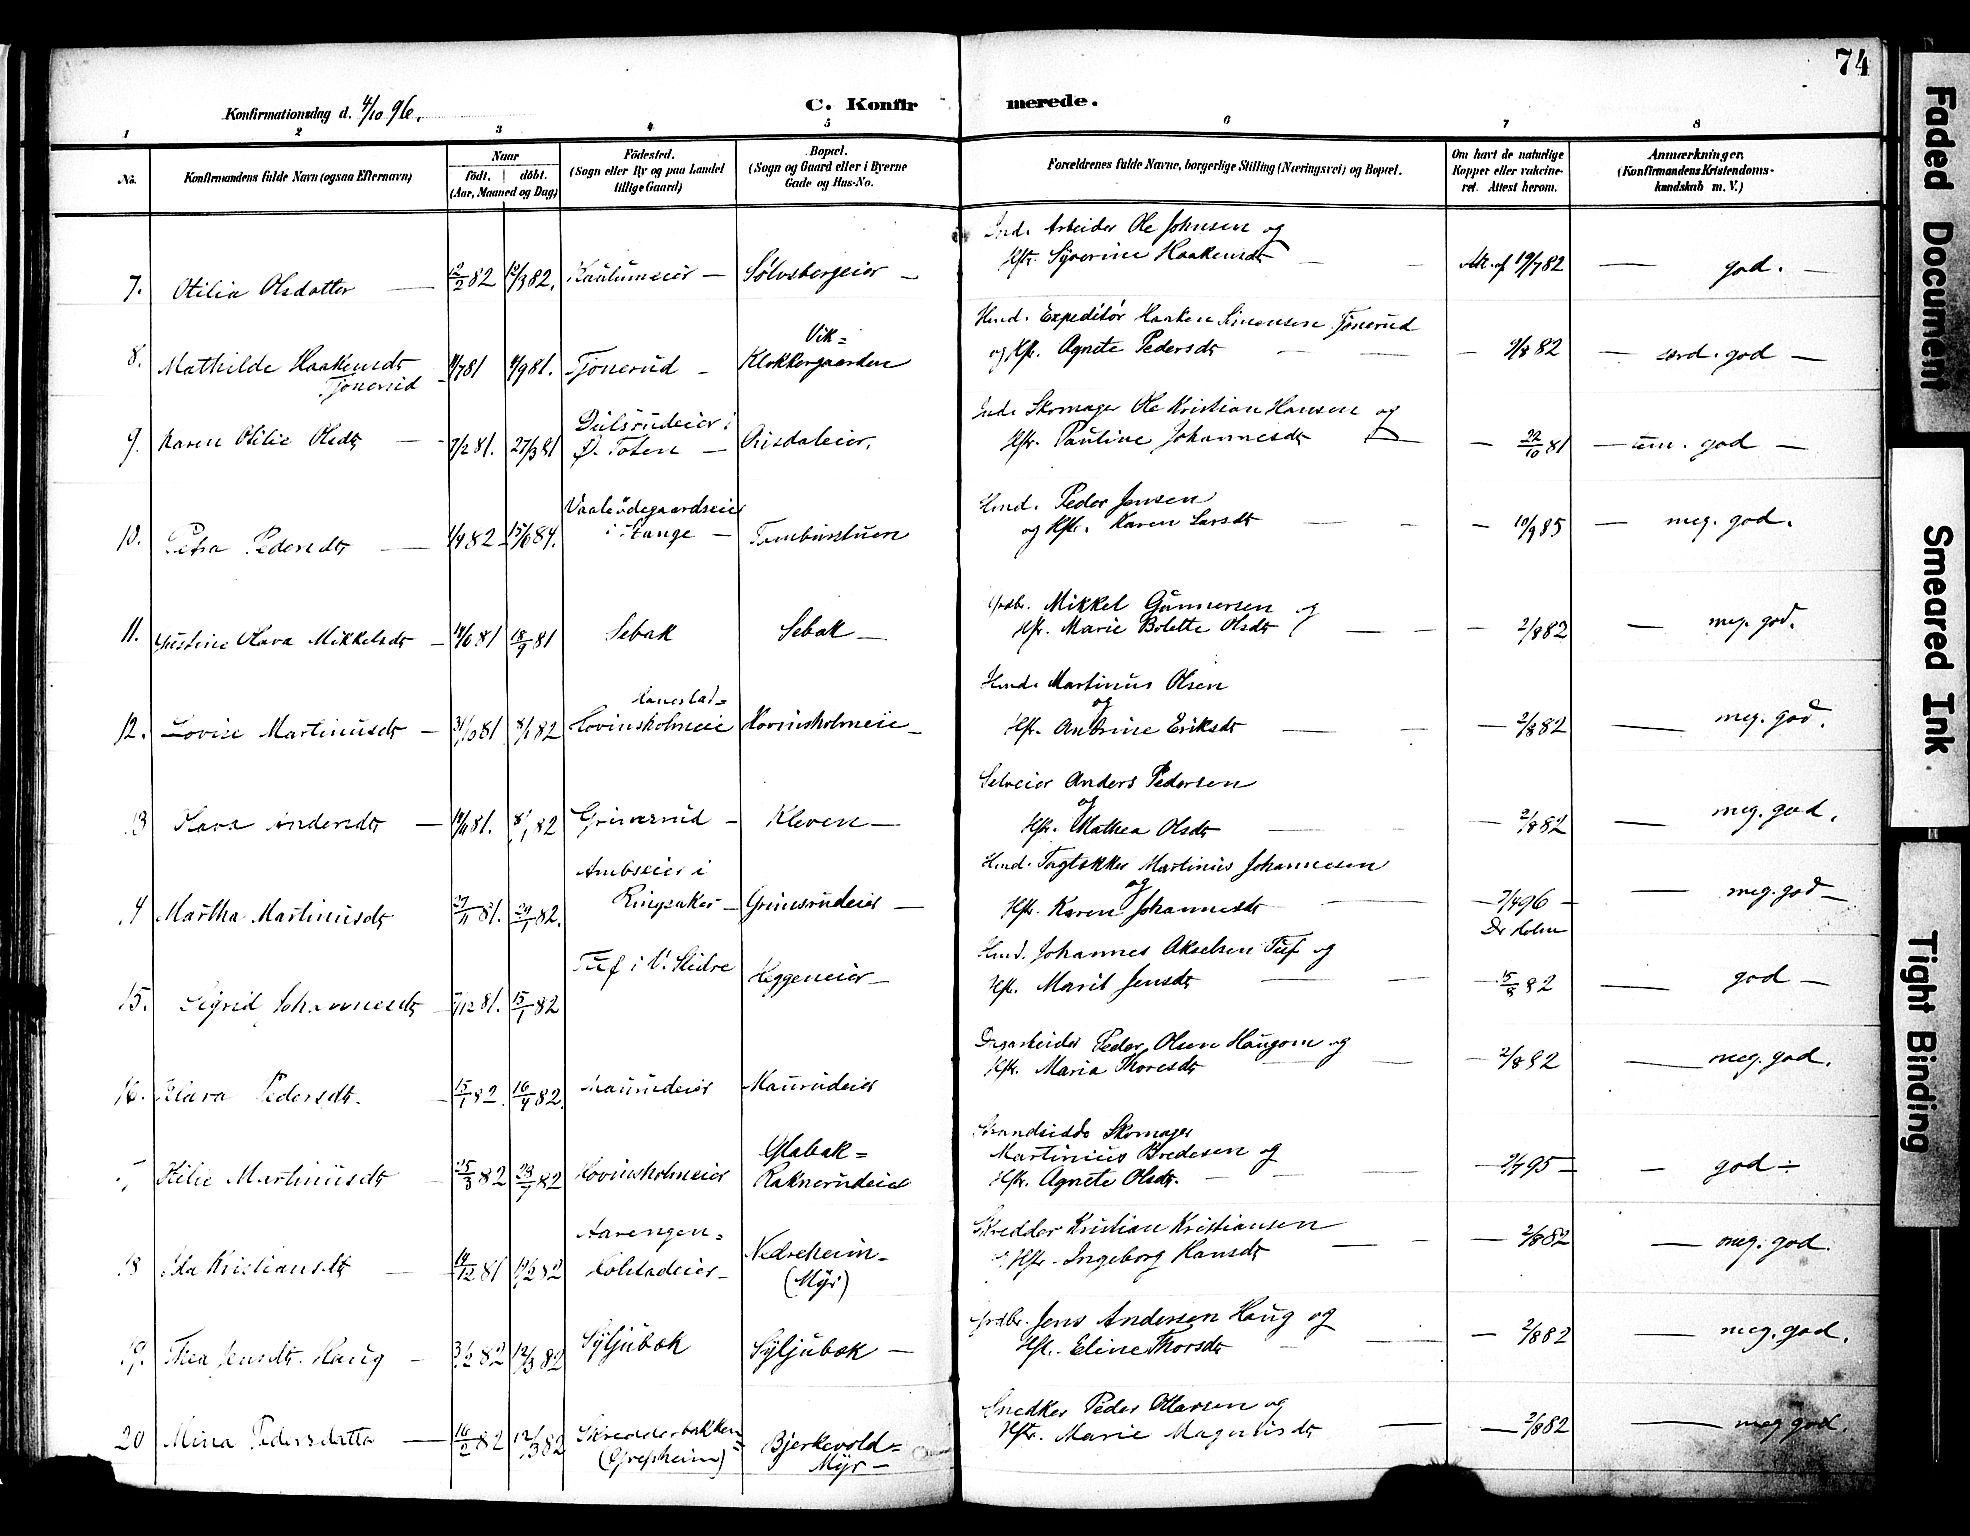 74
Konfirmationsdag d. 4/10 96.
C. Konfirmerede.
1 2 3 4 5 6 7 8
No.
Konfirmandens fulde Navn (ogsaa Efternavn)
Naar
født. døbt.
(Aar, Maaned og Dag)
Fødested.
(Sogn eller By og paa Landet
tillige Gaard)
Bopæl.
(Sogn og Gaard eller i Byerne
Gade og Hus-No.
Forældrenes fulde Navne, borgerlige Stilling (Næringsvei) og Bopæl.
Om havt de naturlige
Kopper eller vaccine-
ret. Attest herom.
Anmærkninger.
(Konfirmandens Kristendoms-
kundskab m. V.)
Ind. Arbeider Ole Johnsen og
Hstr. Syverine Haakensdt
7. Otilia Olsdatter — 12/2 82 12/3 82. Kaulumeier — Sølvsbergeier — Att. af 19/7 82 — god. —
Hmd. Expeditør Haaken Simensen Tjønerud
og Hstr. Agnete Pedersdt
8. Mathilde Haakensdt
Tjønerud
4/7 81 4/9 81. Tjønerud —
Vik=
Klokkergaarden
— 2/8 82 — særd. god —
Ind. Skomager Ole Kristian Hansen og
Hstr. Pauline Johannesdt
9. Karen Otilie Olsdt — 7/2 81. 27/3 81
Dulsrudeier i
Ø. Toten —
Risdaleier.
— 22/10 81 — tem. god —
Hmd. Peder Jensen
og Hstr. Karen Larsdt
10. Petra Pedersdt — 1/9 82 15/6 84.
Vaaleødegaardseier
i Stange —
Tomburstuen
— 10/9 85 — meg. god.
Grdbr. Mikkel Gunnersen og
Hstr. Marie Bolette Olsdt
11. Justine Olava Mikkelsdt — 14/6 81 18/9 81 Sebak Sebak — — 2/8 82 — meg. god.
Hmd. Martinus Olsen
og
Hstr. Andrine Eriksdt
12. Lovise Martinusdt — 31/10 81 8/1 82 Hovinsholmeie Hovinsholmeie — — 2/8 82 — meg. god.
Selveier Anders Pedersen
og
Hstr. Mathea Olsdt
13 Olava Andersdt — 14/11 81. 8/1 82 Grimsrud — Kleven — — 2/8 82 — meg. god.
Hmd. Tagtækker Martinus Johannesen
og
Hstr. Karen Johannesdt
14 Martha Martinusdt 27/11 81. 29/1 82.
Ambseier i
Ringsaker —
Grimsrudeier —
— 7/4 96 —
Dr Holm
— meg. god —
Hmd. Johannes Akselsen Tuf og
Hstr. Marit Jensdt
15. Sigrid Johannesdt 7/12 81. 15/1 82 Tuf i V. Slidre Heggeneier — — 15/8 82 — god —
Dagarbeider Peder Olsen Haugom og
Hstr. Maria Thoresdt
16. Klara Pedersdt. — 15/1 82. 16/4 82. Maurudeier Maurudeier — 2/8 82 — meg. god.
Strandsidde Skomager
Martinius Bredesen og
Hstr. Agnete Olsdt.
Otilie Martinusdt — 25/3 82 23/7 82 Hovinsholmeier
Glabak=
Raknerudeie
— 2/4 95 — — god —
Skrædder Kristian Kristiansen
Hstr. Ingeborg Hansdt
18 Ida Kristiansdt — 14/12 81 19/2 82
Aarengen=
Kolstadeier —
Nedreheim—
(Myr)
— 2/8 82 — meg. god.
Grdbr. Jens Andersen Haug og
Hstr. Eline Thorsdt
19. Thea Jensdt. Haug — 3/2 82 12/3 82 Syljubak Syljubak — — 2/8 82 — meg. god.
Snedker Peder Ottersen og
Hstr. Marie Magnusdt
20 Mina Pedersdatter — 16/2 82 12/3 82
Skrædderbakken
(Grefsheim)
Bjerkevold=
Myr —
— 2/8 82 — meg god.
Faded Document
Smeared Ink
Tight Binding